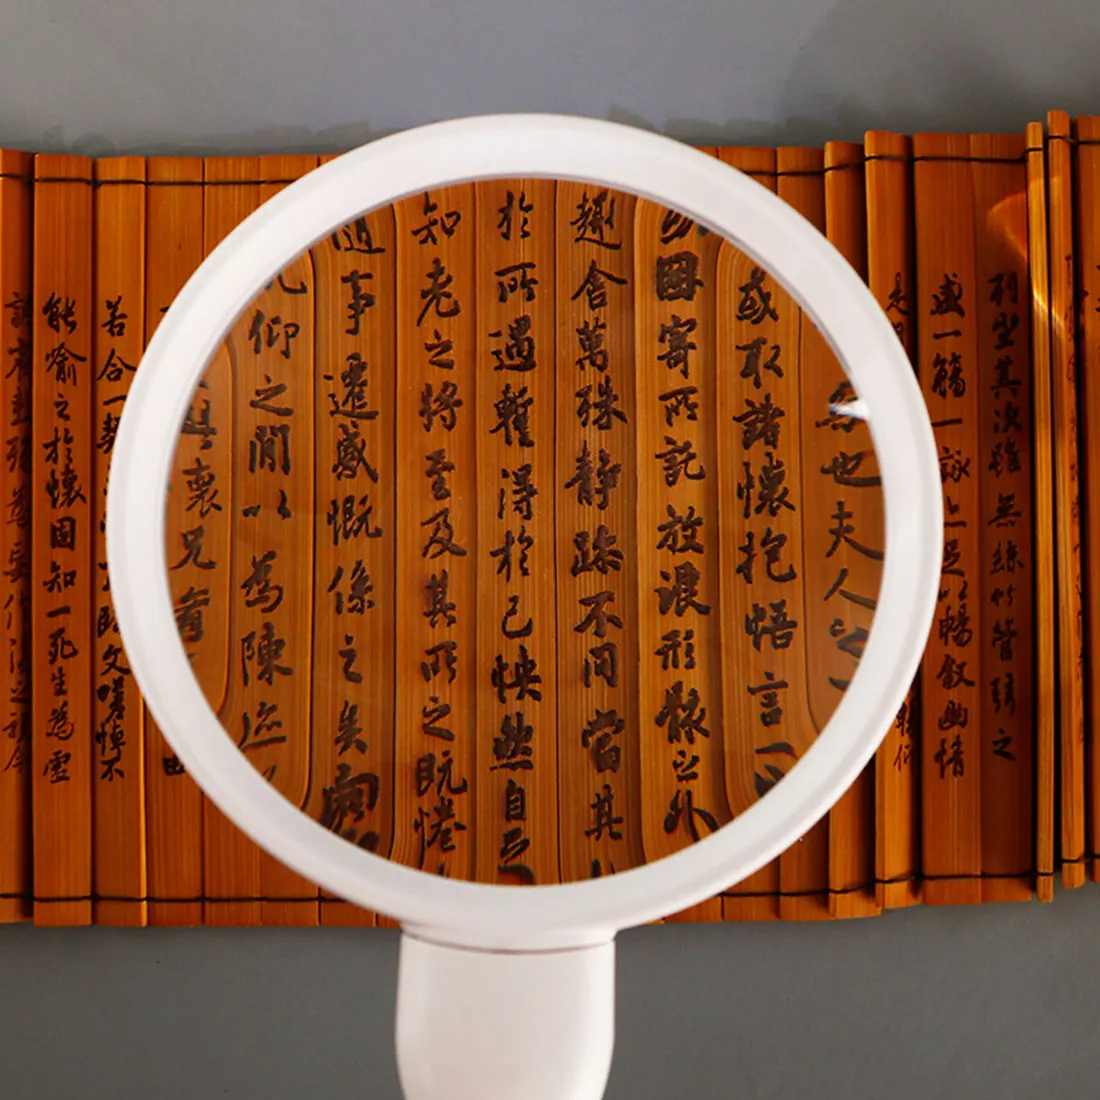 列坐其次雖無絲竹管弦之
盛一觴一詠亦足以暢敘幽情
也夫人之
或取諸懷抱悟言一
因寄所託放浪形骸之外
趣舍萬殊靜躁不同當其
於所遇暫得於己怏然自足
知老之將至及其所之既惓
隨事遷感慨係之矣向
仰之閒以為陳迹
興懷況脩
若合一契 臨文嗟悼不
能喻之於懷固知一死生為虛
誕齊彭殤為妄作後之視今